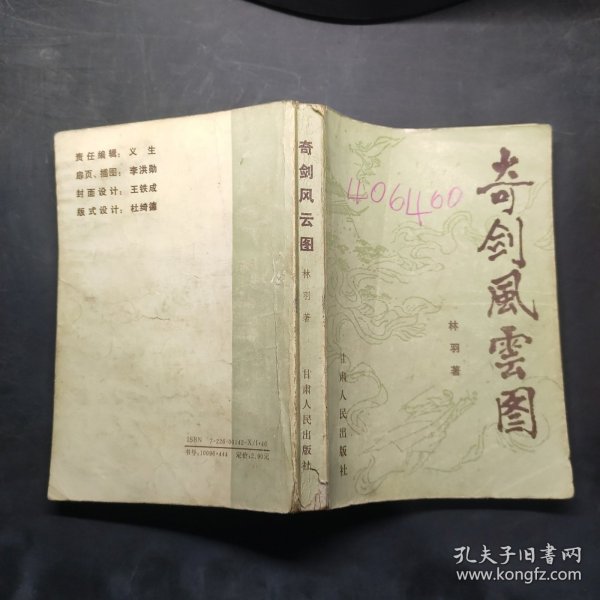 责任编辑：义生
扉页、插图：李洪勋
封面设计：王铁成
版式设计：杜绮德
ISBN 7-226-00142-X/I·40
书号：10096·444 定价：2.90元
奇剑风云图
林羽著
甘肃人民出版社
406400
奇剑風雲图
林羽著
甘肃人民出版社
孔夫子旧书网
www.kongfz.com